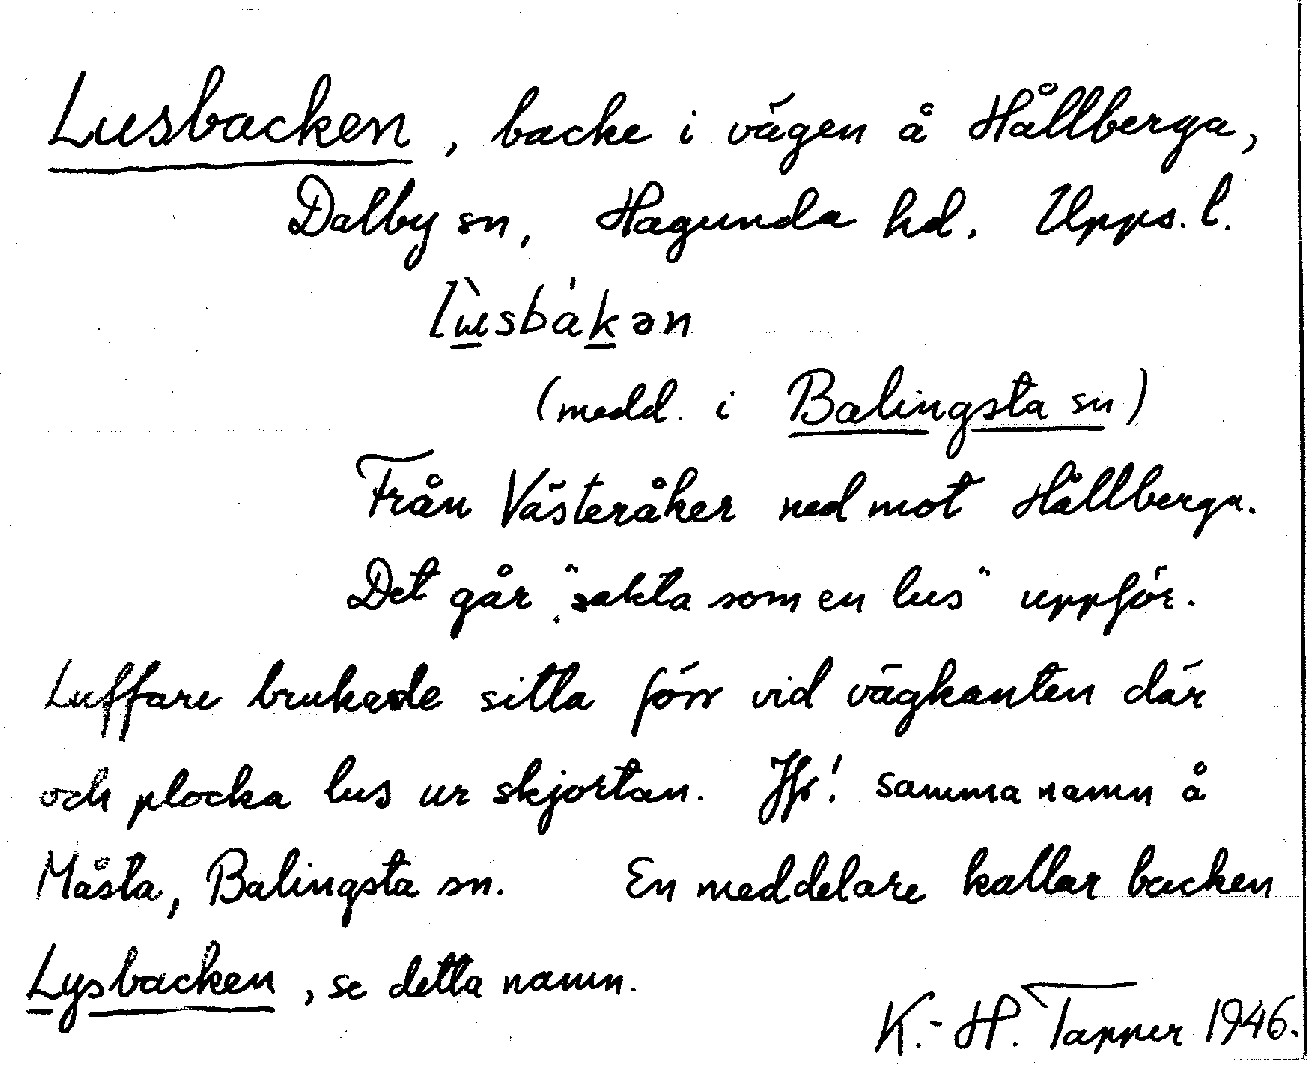 Lusbacken, backe i vägen å Hållberga,
Dalby sn, Hagunda hd. Upps. l.
lùsbákən
(medd. i Balingsta sn)
Från Västeråker ned mot Hållberga.
Det går "sakta som en lus" uppför.
Luffare brukade sitta förr vid vägkanten där
och plocka lus ur skjortan. Jfr! samma namn å
Måsta, Balingsta sn. En meddelare kallar backen
Lysbacken, se detta namn.
K.-H. Tapper 1946.